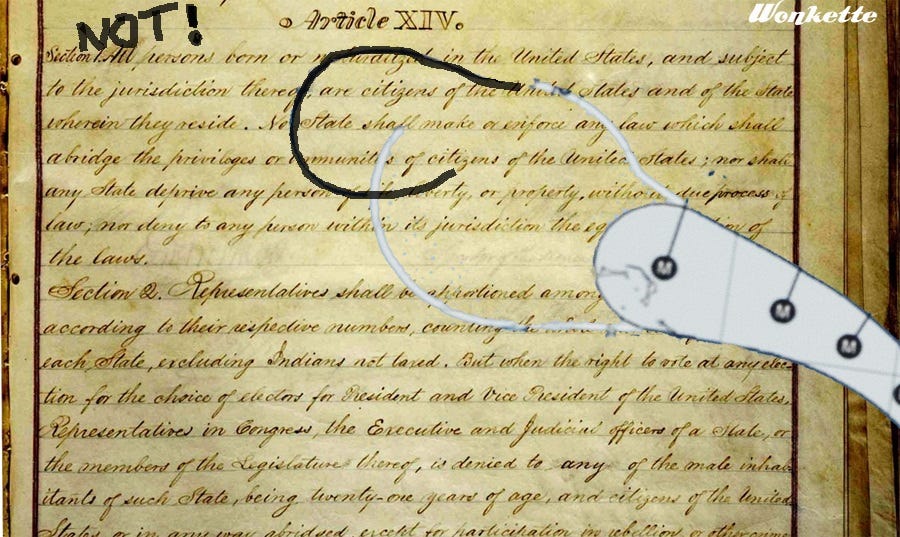 Wonkette
NOT!
Article XIV.
Section 1. All persons born or naturalized in the United States, and subject
to the jurisdiction thereof, are citizens of the United States and of the State
wherein they reside. No State shall make or enforce any law which shall
abridge the privileges or immunities of citizens of the United States; nor shall
any State deprive any person of life, liberty, or property, without due process of
law; nor deny to any person within its jurisdiction the of
the laws.
Section 2. Representatives shall be apportioned among
according to their respective numbers, counting the
each State, excluding Indians not taxed. But when the right to vote at any elec-
tion for the choice of electors for President and Vice President of the United States,
Representatives in Congress, the Executive and Judicial officers of a State, or
the members of the Legislature thereof, is denied to any of the male inhab-
itants of such State, being twenty-one years of age, and citizens of the United
States, or in any way abridged, except for participation in rebellion, or other crime
M
M
M